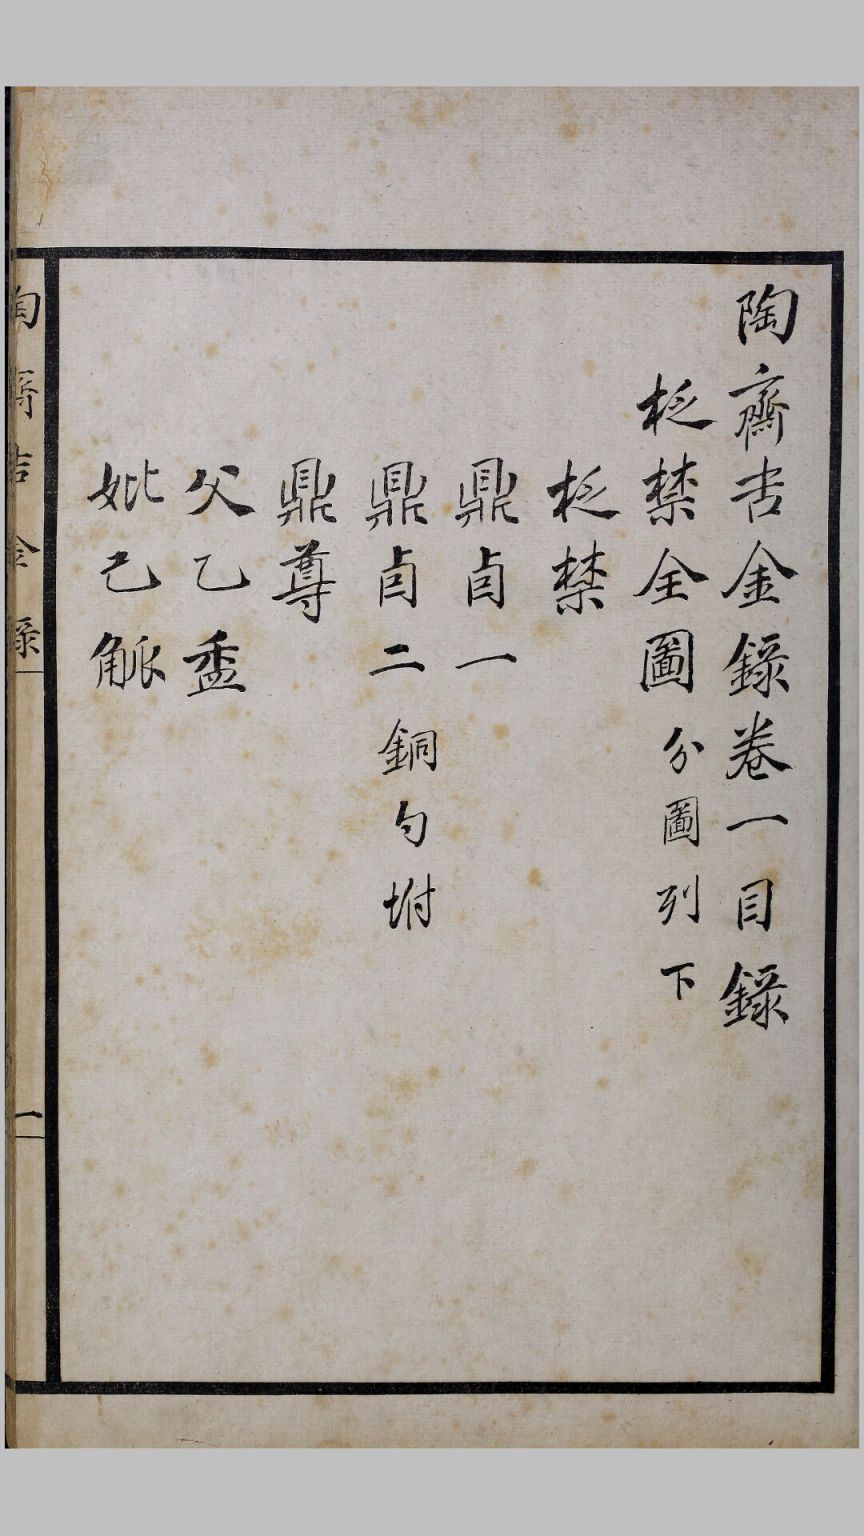 陶齋吉金錄卷一目錄
柉禁全圖 分圖列下
柉禁
鼎卣一
鼎卣二 銅勺坿
鼎尊
父乙盉
妣己觚
陶齋吉金錄 一